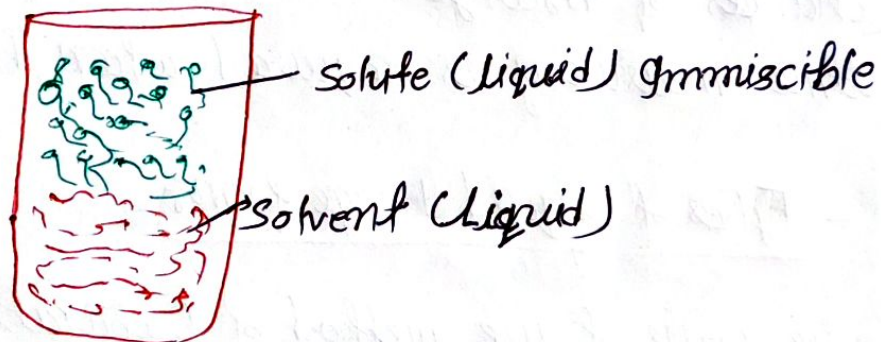 Solute (Liquid) Immiscible
Solvent (Liquid)